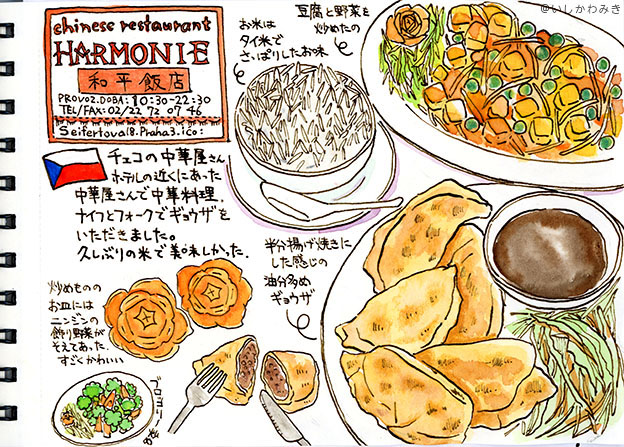 @いしかわみき
chinese restaurant
HARMONIE
和平飯店
PROVOZ.DOBA: 10:30-22:30
TEL/FAX: 02/22 72 07 46
Seifertova18.Praha3.ico:
お米は
タイ米で
さっぱりしたお味
豆腐と野菜を
炒めたの
チェコの中華屋さん
ホテルの近くにあった
中華屋さんで中華料理.
ナイフとフォークでギョウザを
いただきました。
久しぶりの米で美味しかった.
半分揚げ焼きに
した感じの
油分多め
ギョウザ
炒めものの
お皿には
ニンジンの
飾り野菜が
そえてあった.
すごくかわいい
ブロッコリー